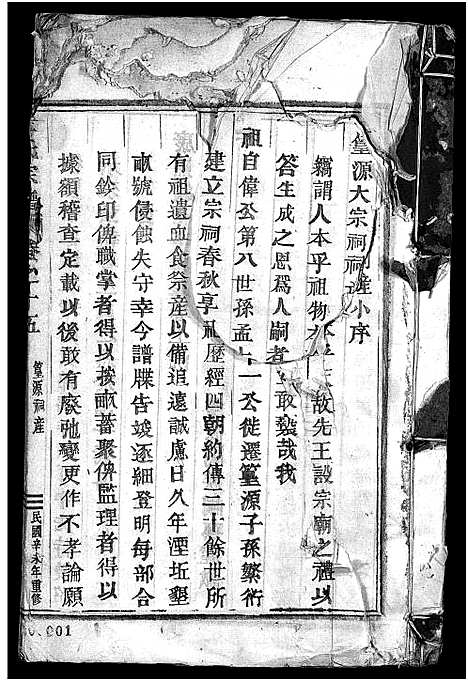 篁源大宗祠祠產小序
竊謂人本乎祖物本乎天故先王設宗廟之禮以
答生成之恩爲人嗣者敢褻哉我
祖自偉公第八世孫孟七一公徙遷篁源子孫繁衍
建立宗祠春秋享祀歷經四朝約傳三十餘世所
有祖遺血食祭產以備追遠誠慮日久年湮坵墾
畝號侵蝕失守幸今譜牒告竣逐細登明每部合
同鈐印俾職掌者得以按畝蓄聚俾監理者得以
據額稽查定載以後敢有廢弛變更作不孝論願
宗譜 卷六十五
篁源祠產
民國辛未年重修
001